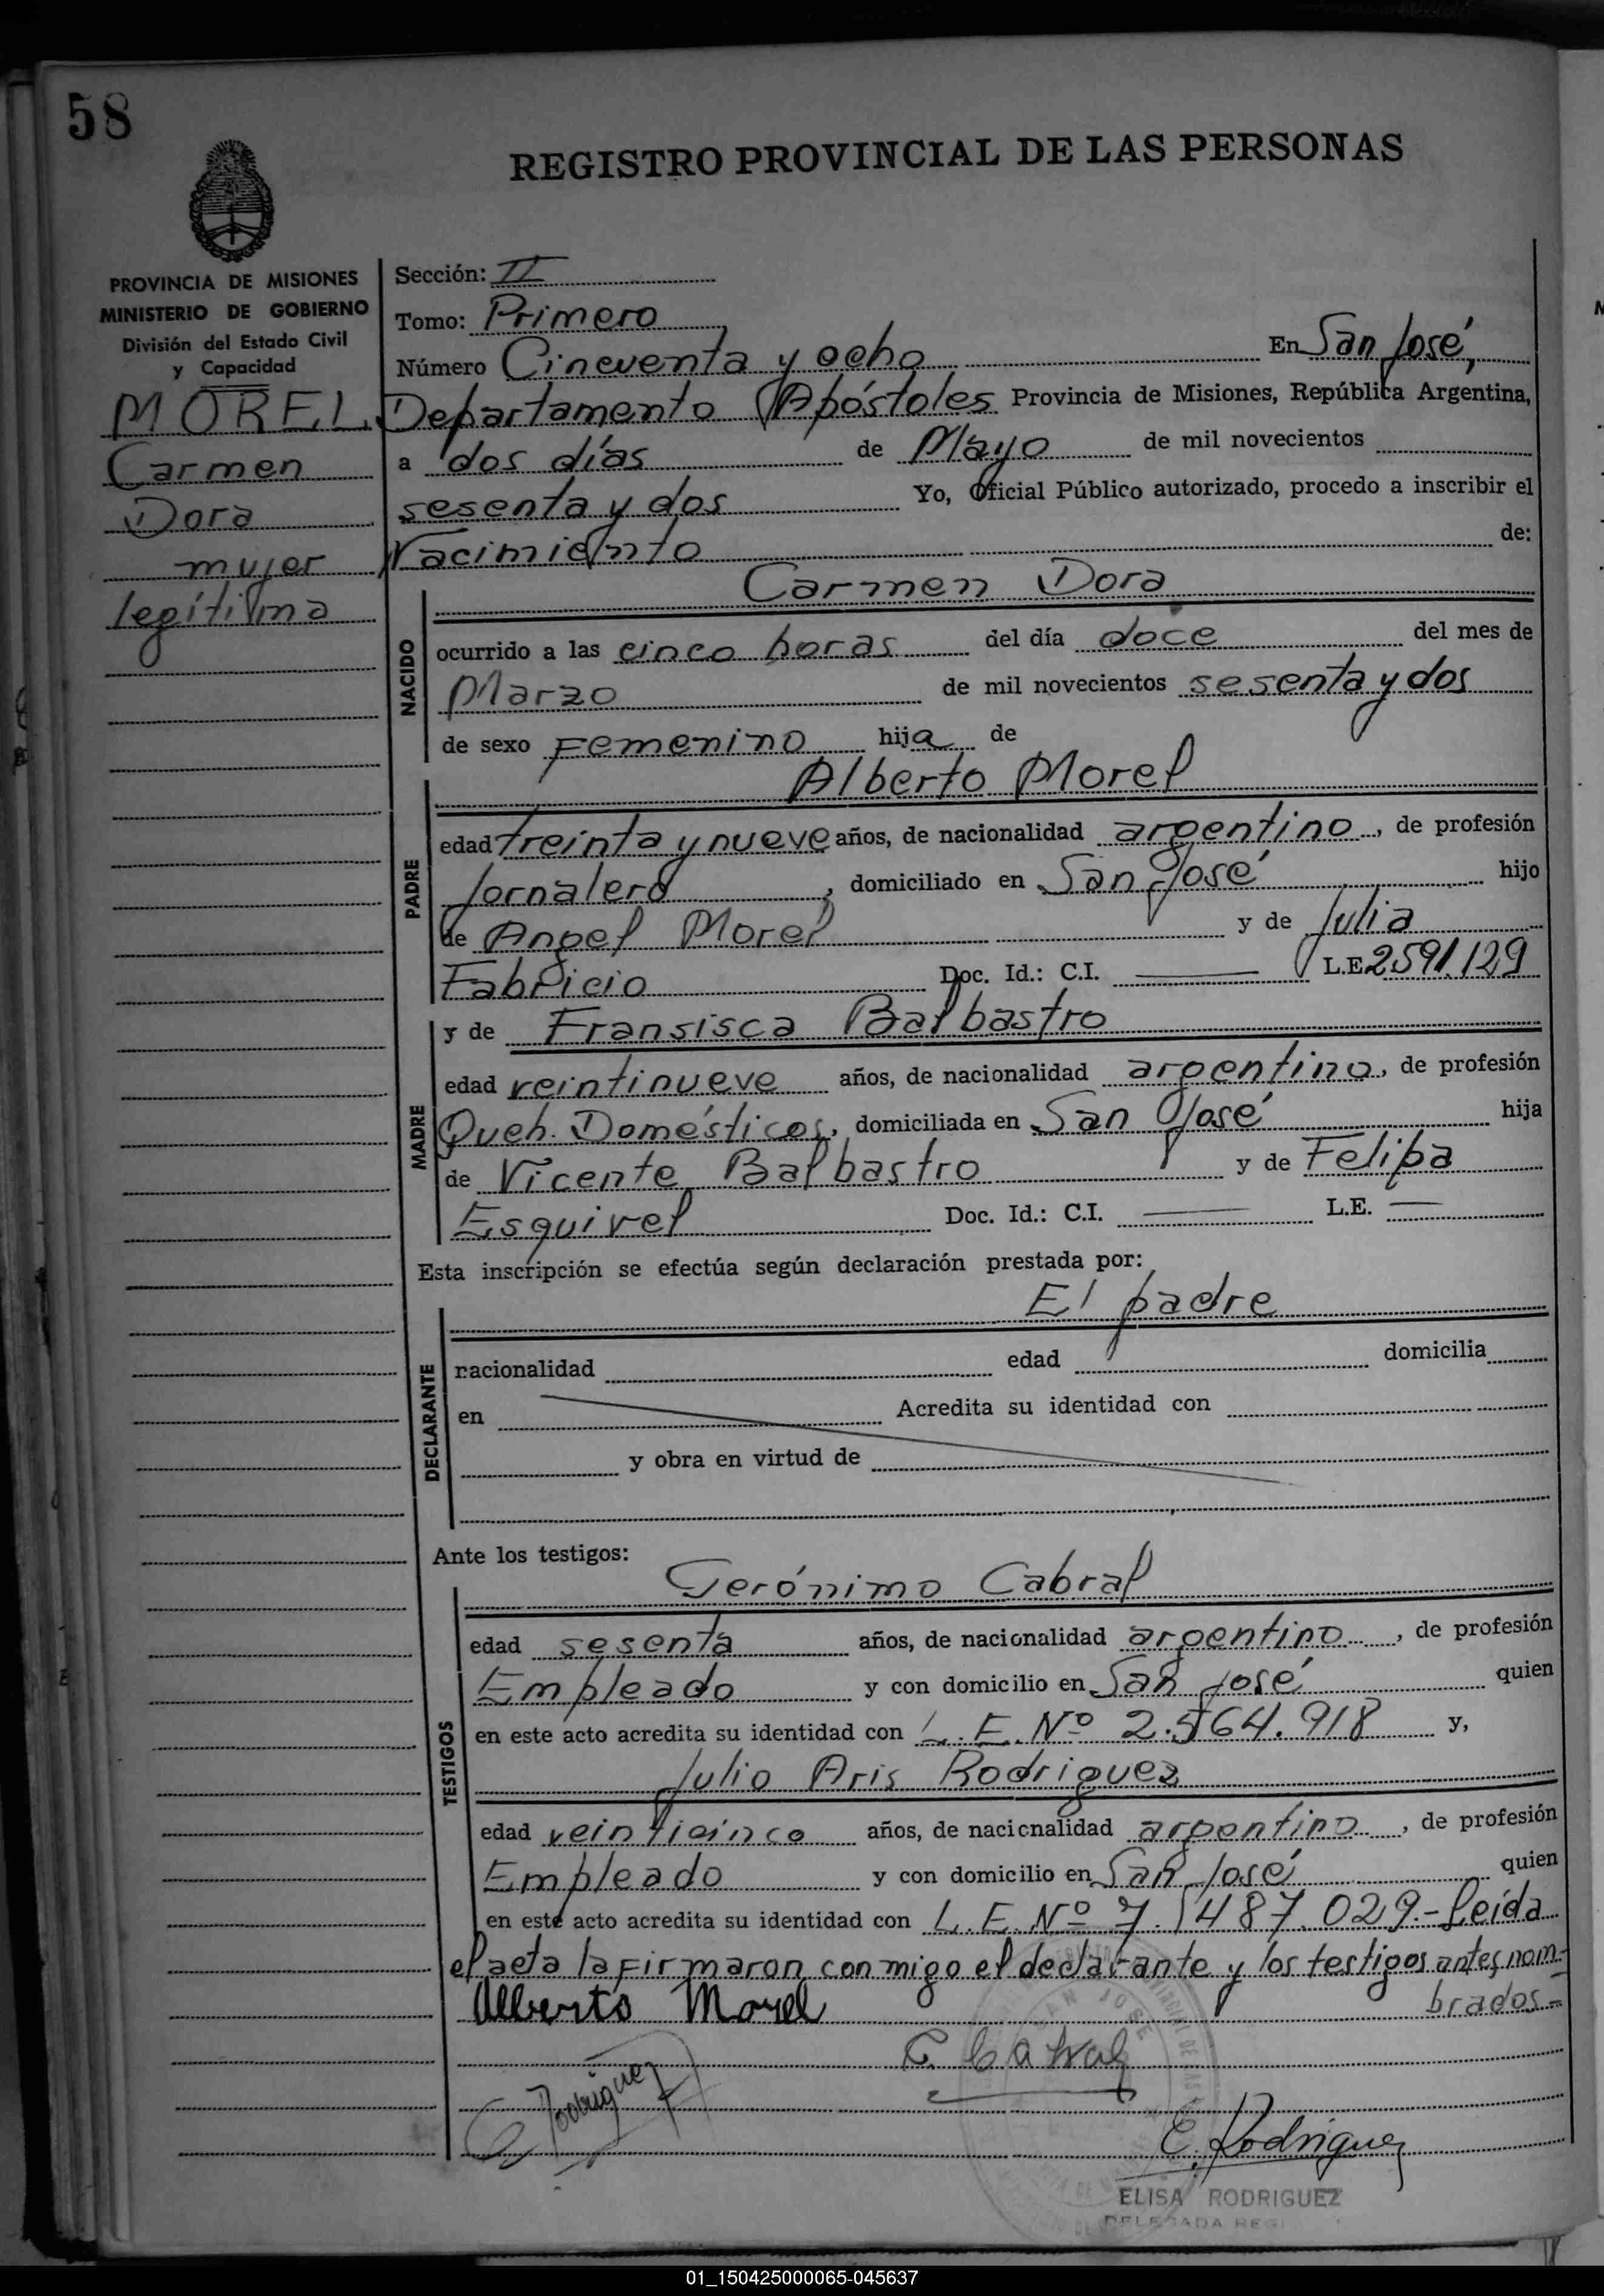 58
REGISTRO PROVINCIAL DE LAS PERSONAS
PROVINCIA DE MISIONES
MINISTERIO DE GOBIERNO
División del Estado Civil
y Capacidad
MOREL
Carmen
Dora
mujer
legítima
Sección: II
Tomo: Primero
Número Cincuenta y ocho En San José,
Departamento Apóstoles Provincia de Misiones, República Argentina,
a dos días de Mayo de mil novecientos
sesenta y dos Yo, Oficial Público autorizado, procedo a inscribir el
Nacimiento de:
Carmen Dora
NACIDO
ocurrido a las cinco horas del día doce del mes de
Marzo de mil novecientos sesenta y dos
de sexo Femenino hija de
Alberto Morel
PADRE
edad treinta y nueve años, de nacionalidad argentino, de profesión
Jornalero, domiciliado en San José hijo
de Angel Morel y de Julia
Fabricio Doc. Id.: C.I. L.E 2591.129
y de Fransisca Balbastro
MADRE
edad veintinueve años, de nacionalidad argentina, de profesión
Queh. Domésticos, domiciliada en San José hija
de Vicente Balbastro y de Felipa
Esquivel Doc. Id.: C.I. L.E.
Esta inscripción se efectúa según declaración prestada por:
El padre
DECLARANTE
nacionalidad edad domicilia
en Acredita su identidad con
y obra en virtud de
Ante los testigos:
Gerónimo Cabral
TESTIGOS
edad sesenta años, de nacionalidad argentino, de profesión
Empleado y con domicilio en San José quien
en este acto acredita su identidad con L.E. Nº 2.564.918 y,
Julio Aris Rodriguez
edad veinticinco años, de nacionalidad argentino, de profesión
Empleado y con domicilio en San José quien
en este acto acredita su identidad con L.E. Nº 7.487.029.- Leída
el acta la firmaron conmigo el declarante y los testigos antes nom-
brados=
Alberto Morel
G. Cabral
Rodriguez
E. Rodriguez
ELISA RODRIGUEZ
DELEGADA REG
01_150425000065-045637